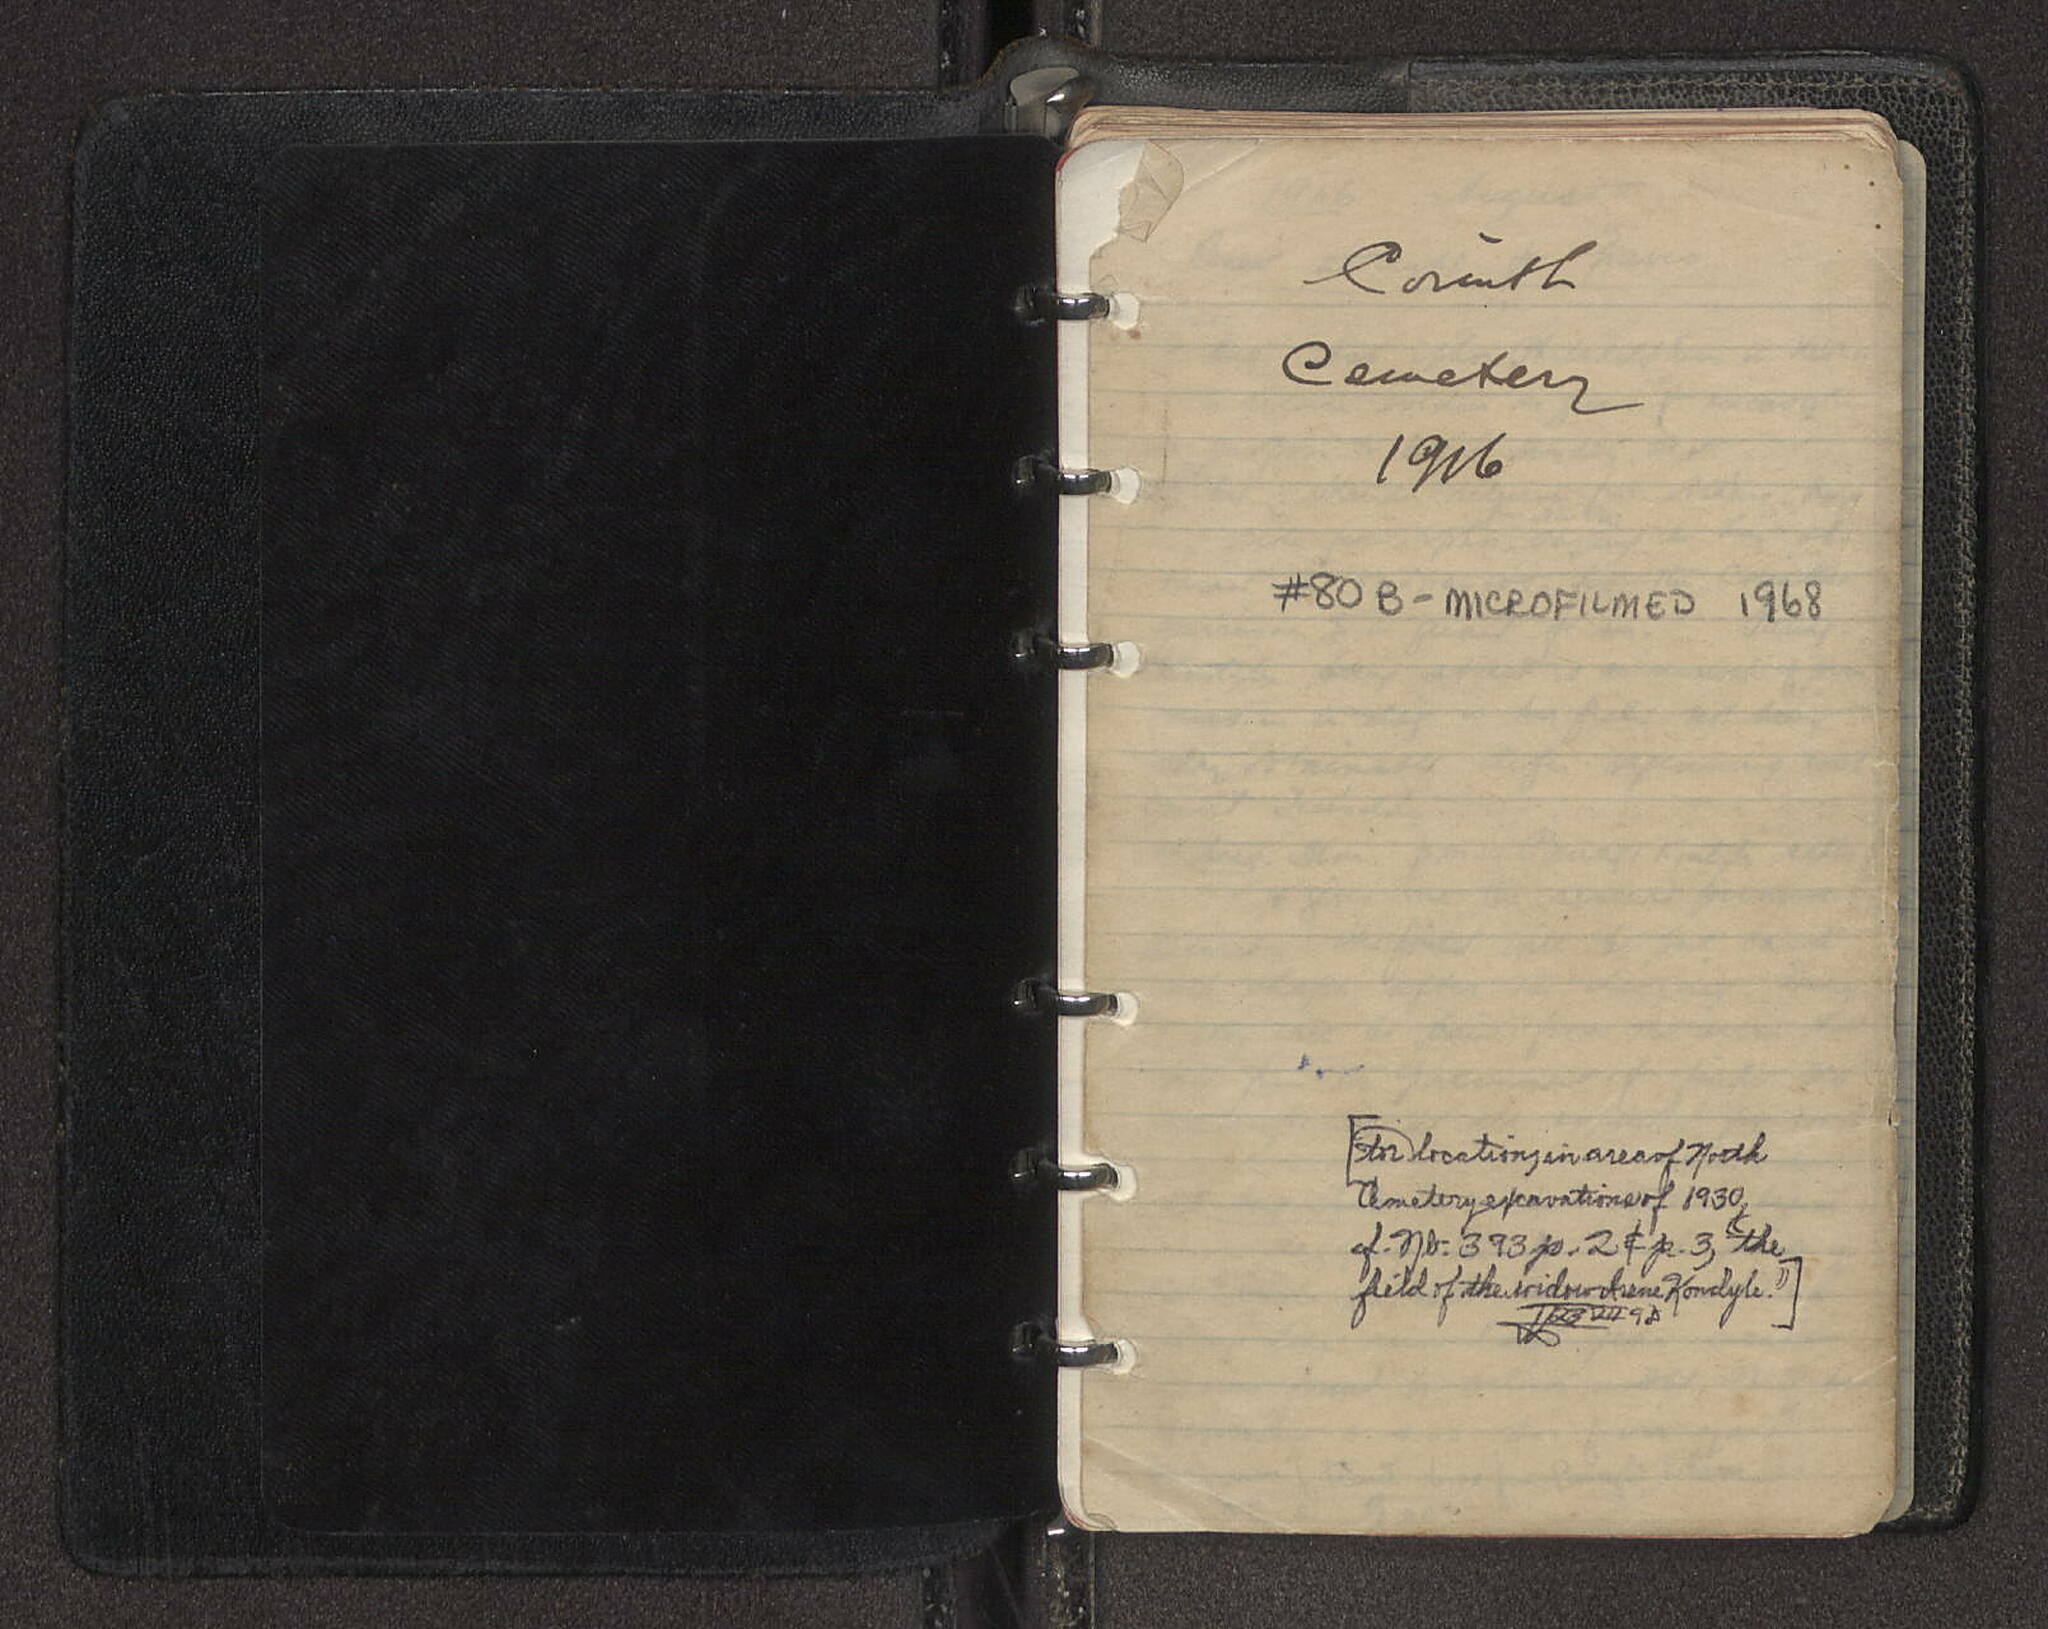 Corinth
Cemetery
1916
#80 B - MICROFILMED 1968
[for locations in area of North
Cemetery excavations of 1930,
cf. Nb. 393 p. 2 & p. 3, "the
field of the widow Irene Kondyle."]